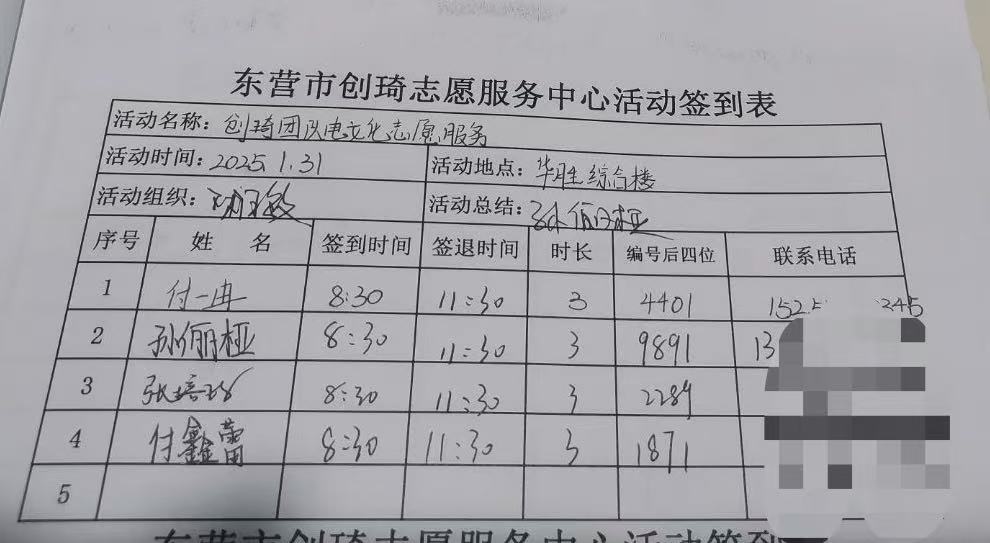 东营市创琦志愿服务中心活动签到表
活动名称：创琦团队电文化志愿服务
活动时间：2025.1.31 活动地点：华胜综合楼
活动组织： 活动总结：孙俪桠
序号 姓 名 签到时间 签退时间 时长 编号后四位 联系电话
1 付一冉 8:30 11:30 3 4401 152 245
2 孙俪桠 8:30 11:30 3 9891 13
3 张培 8:30 11:30 3 2289
4 付鑫蕾 8:30 11:30 3 1871
5
东营市创琦志愿服务中心活动签到